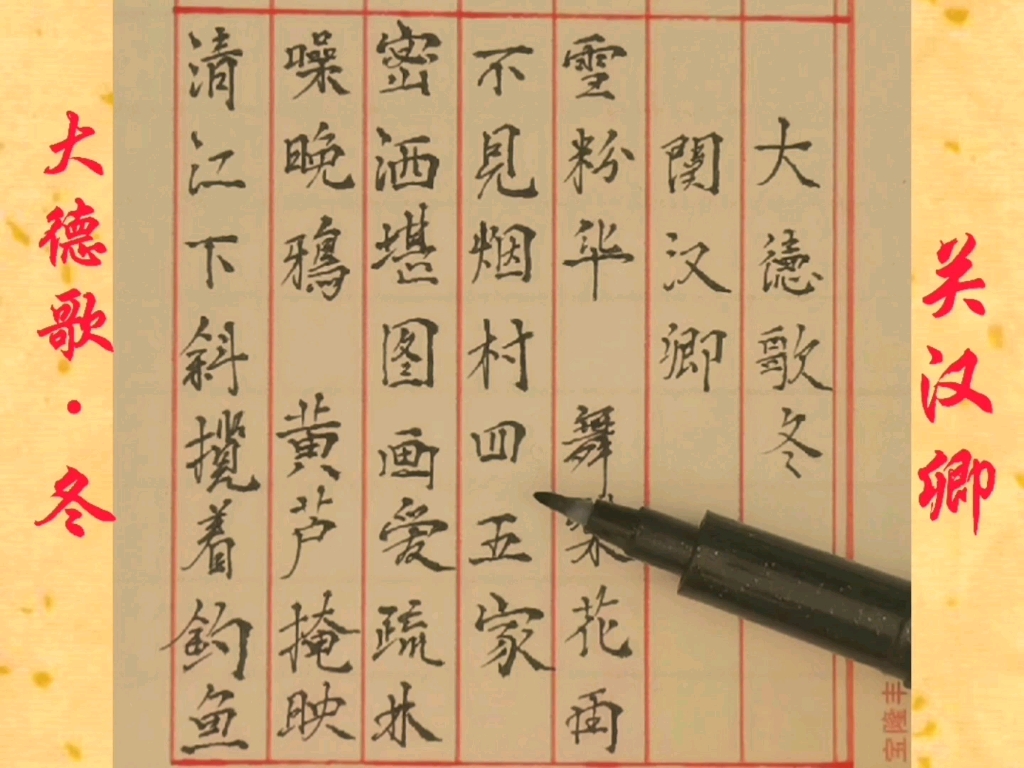 大德歌·冬
关汉卿
大德歌冬
関汉卿
雪粉华 舞梨花再
不見烟村四五家
密洒堪图画爱疏林
噪晚鴉 黄芦掩映
清江下斜揽着釣鱼
宝隆丰